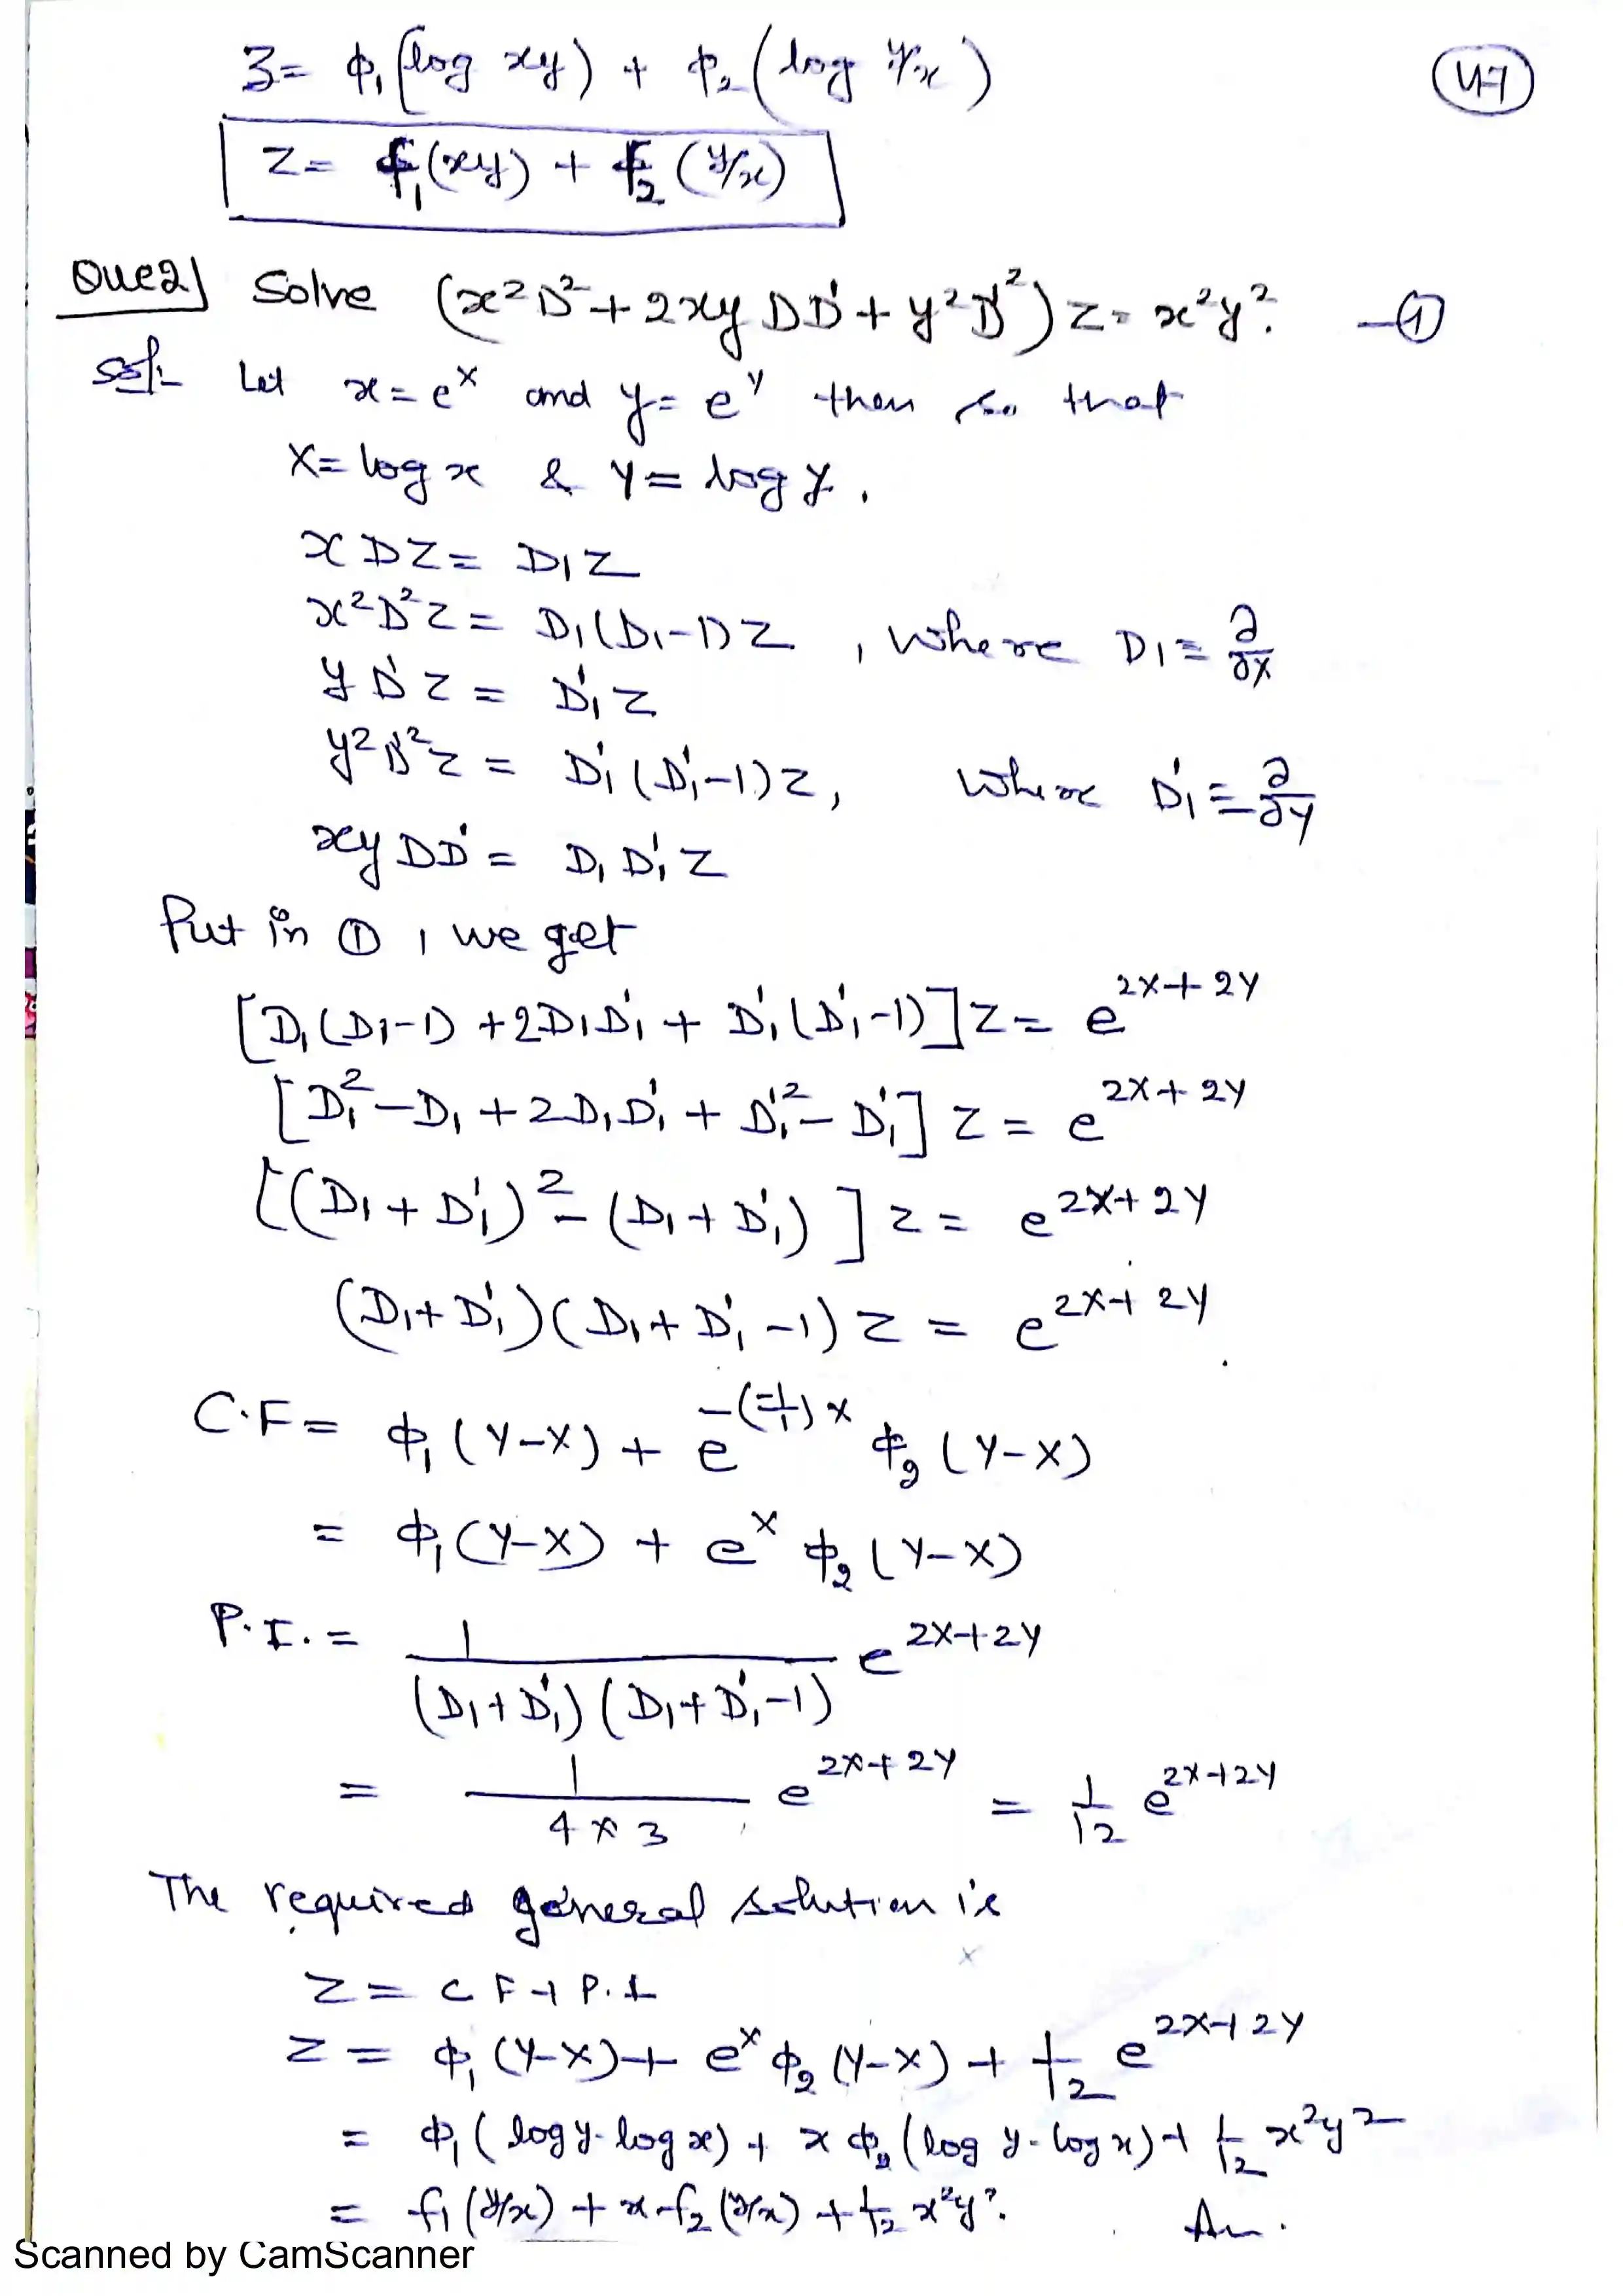 z = ϕ₁(log xy) + ϕ₂(log y/x)
47
z = f₁(xy) + f₂(y/x)
Que2) Solve (x²D² + 2xy DD' + y²D'²) z = x²y² —①
Sol:- Let x = e^X and y = e^Y then so that
X = log x & Y = log y.
x D z = D₁ z
x²D² z = D₁(D₁-1) z , where D₁ = ∂/∂X
y D' z = D'₁ z
y²D'² z = D'₁(D'₁-1) z, where D'₁ = ∂/∂Y
xy DD' = D₁ D'₁ z
Put in ① , we get
[D₁(D₁-1) + 2D₁D'₁ + D'₁(D'₁-1)] z = e^(2X+2Y)
[D₁² - D₁ + 2D₁D'₁ + D'₁² - D'₁] z = e^(2X+2Y)
[(D₁+D'₁)² - (D₁+D'₁)] z = e^(2X+2Y)
(D₁+D'₁)(D₁+D'₁-1) z = e^(2X+2Y)
C.F = ϕ₁(Y-X) + e^(-(-1/1)X) ϕ₂(Y-X)
= ϕ₁(Y-X) + e^X ϕ₂(Y-X)
P.I. = 1/((D₁+D'₁)(D₁+D'₁-1)) e^(2X+2Y)
= 1/(4×3) e^(2X+2Y) = 1/12 e^(2X+2Y)
The required general solution is
z = C F + P.I
z = ϕ₁(Y-X) + e^X ϕ₂(Y-X) + 1/12 e^(2X+2Y)
= ϕ₁(log y - log x) + x ϕ₂(log y - log x) + 1/12 x²y²
= f₁(y/x) + x f₂(y/x) + 1/12 x²y². An.
Scanned by CamScanner